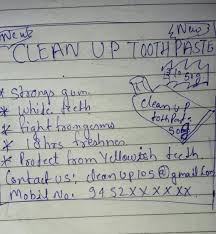 New
{New}
CLEAN UP TOOTH PASTE
* Strongs gum
* White teeth
* fight from germs
* 18hrs freshner
* Protect from Yellowish teeth
clean up
toth Paste
50g
Contact us: cleanup105@gmail.com
Mobil No: 9452XXXXXX